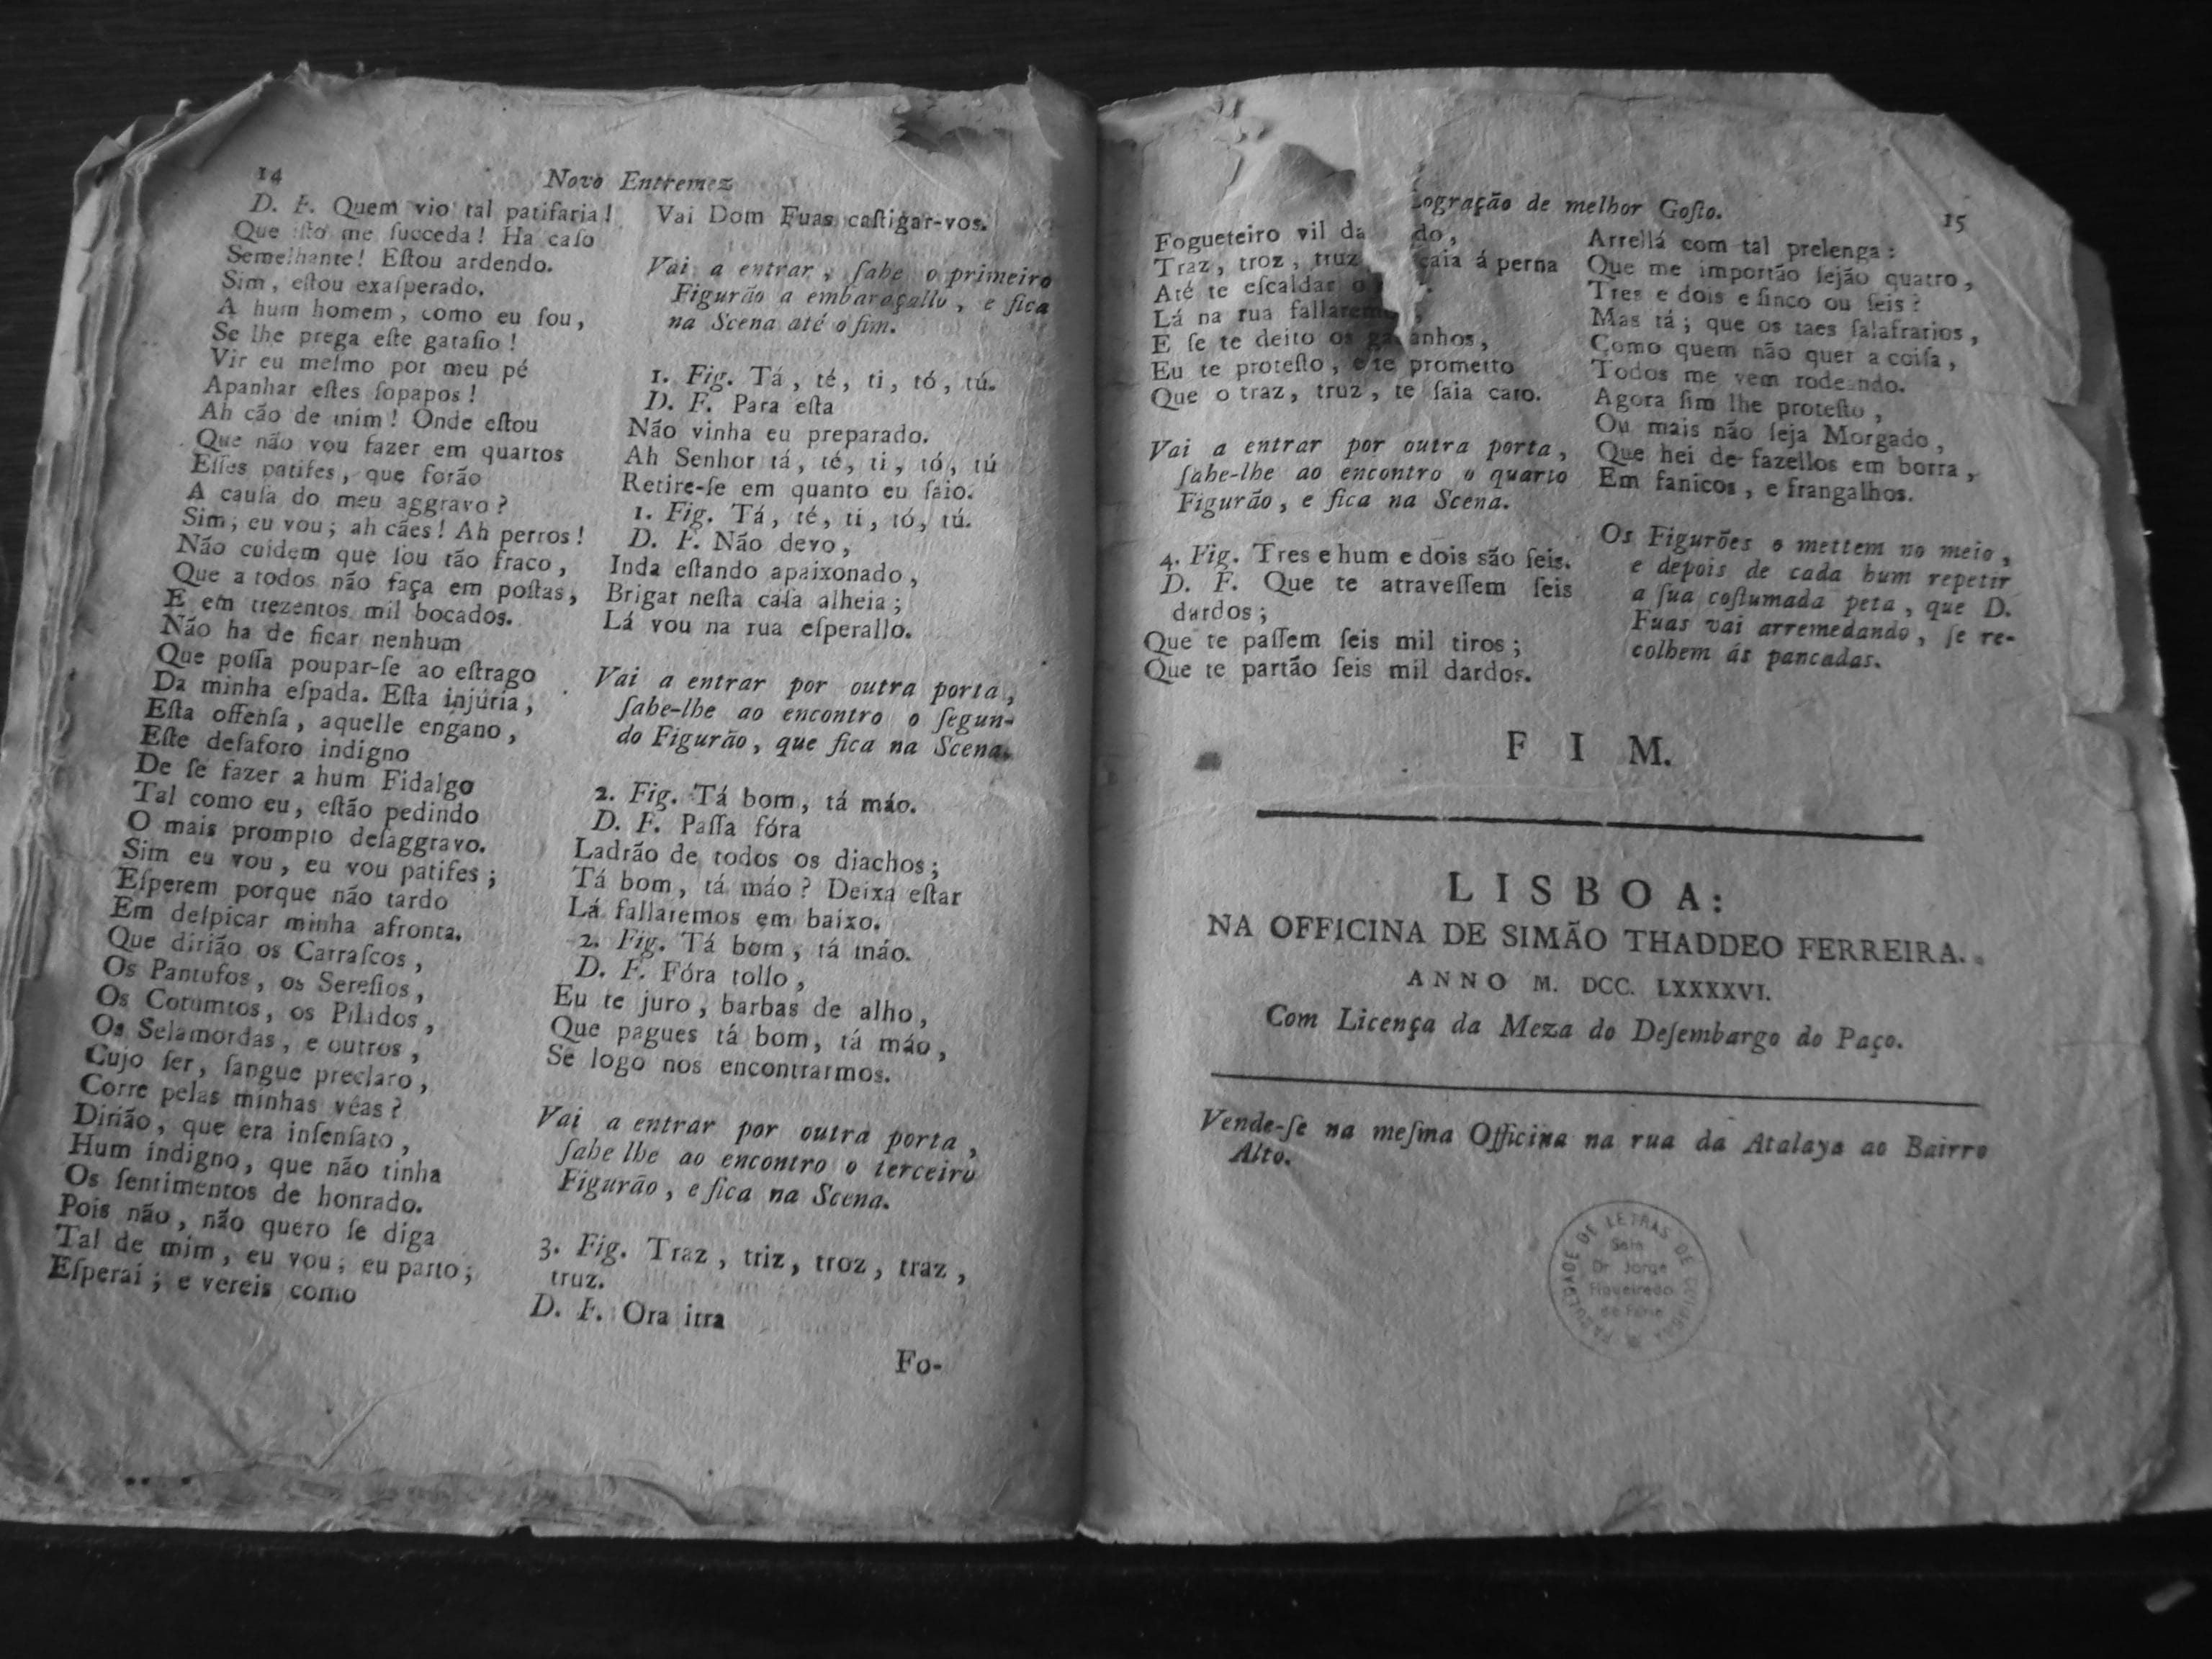 14
Novo Entremez
D. F. Quem vio tal patifaria!
Que isto me ſucceda! Ha caſo
Semelhante! Eſtou ardendo.
Sim, eſtou exaſperado.
A hum homem, como eu ſou,
Se lhe prega eſte garaſio!
Vir eu meſmo por meu pé
Apanhar eſtes ſopapos!
Ah cão de mim! Onde eſtou
Que não vou fazer em quartos
Eſſes patifes, que forão
A cauſa do meu aggravo?
Sim, eu vou; ah cães! Ah perros!
Não cuidem que ſou tão fraco,
Que a todos não faça em poſtas,
E em trezentos mil bocados.
Não ha de ficar nenhum
Que poſſa poupar-ſe ao eſtrago
Da minha eſpada. Eſta injúria,
Eſta offenſa, aquelle engano,
Eſte deſaforo indigno
De ſe fazer a hum Fidalgo
Tal como eu, eſtão pedindo
O mais prompto deſaggravo.
Sim eu vou, eu vou patifes;
Eſperem porque não tardo
Em deſpicar minha afronta.
Que dirião os Carraſcos,
Os Pantufos, os Sereſios,
Os Cotumtos, os Pilados,
Os Selamordas, e outros,
Cujo ſer, ſangue preclaro,
Corre pelas minhas vêas?
Dirião, que era inſenſato,
Hum indigno, que não tinha
Os ſentimentos de honrado.
Pois não, não quero ſe diga
Tal de mim, eu vou; eu parto;
Eſperai; e vereis como
Vai Dom Fuas caſtigar-vos.
Vai a entrar, ſahe o primeiro
Figurão a embaraçallo, e fica
na Scena até o fim.
1. Fig. Tá, té, ti, tó, tú.
D. F. Para eſta
Não vinha eu preparado.
Ah Senhor tá, té, ti, tó, tú
Retire-ſe em quanto eu ſaio.
1. Fig. Tá, té, ti, tó, tú.
D. F. Não devo,
Inda eſtando apaixonado,
Brigar neſta caſa alheia;
Lá vou na rua eſperallo.
Vai a entrar por outra porta,
ſahe-lhe ao encontro o ſegun-
do Figurão, que fica na Scena.
2. Fig. Tá bom, tá máo.
D. F. Paſſa fóra
Ladrão de todos os diachos;
Tá bom, tá máo? Deixa eſtar
Lá fallaremos em baixo.
2. Fig. Tá bom, tá máo.
D. F. Fóra tollo,
Eu te juro, barbas de alho,
Que pagues tá bom, tá máo,
Se logo nos encontrarmos.
Vai a entrar por outra porta,
ſahe lhe ao encontro o terceiro
Figurão, e fica na Scena.
3. Fig. Traz, triz, troz, traz,
truz.
D. F. Ora irra
Fo-
Logração de melhor Goſto.
15
Fogueteiro vil da do,
Traz, troz, truz caia á perna
Até te eſcaldar
Lá na rua fallarem
E ſe te deito os anhos,
Eu te proteſto, e te prometto
Que o traz, truz, te ſaia caro.
Vai a entrar por outra porta,
ſahe-lhe ao encontro o quarto
Figurão, e fica na Scena.
4. Fig. Tres e hum e dois são ſeis.
D. F. Que te atraveſſem ſeis
dardos;
Que te paſſem ſeis mil tiros;
Que te partão ſeis mil dardos.
Arrellá com tal prelenga:
Que me importão ſejão quatro,
Tres e dois e ſinco ou ſeis?
Mas tá; que os taes ſalafrarios,
Como quem não quer a coiſa,
Todos me vem rodeando.
Agora ſim lhe proteſto,
Ou mais não ſeja Morgado,
Que hei de fazellos em borra,
Em fanicos, e frangalhos.
Os Figurões o mettem no meio,
e depois de cada hum repetir
a ſua coſtumada peta, que D.
Fuas vai arremedando, ſe re-
colhem ás pancadas.
FIM.
LISBOA:
NA OFFICINA DE SIMÃO THADDEO FERREIRA.
ANNO M. DCC. LXXXXVI.
Com Licença da Meza do Deſembargo do Paço.
Vende-ſe na meſma Officina na rua da Atalaya ao Bairro
Alto.
FACULDADE DE LETRAS DE COIMBRA
Sala
Dr. Jorge
Figueiredo
de Faria